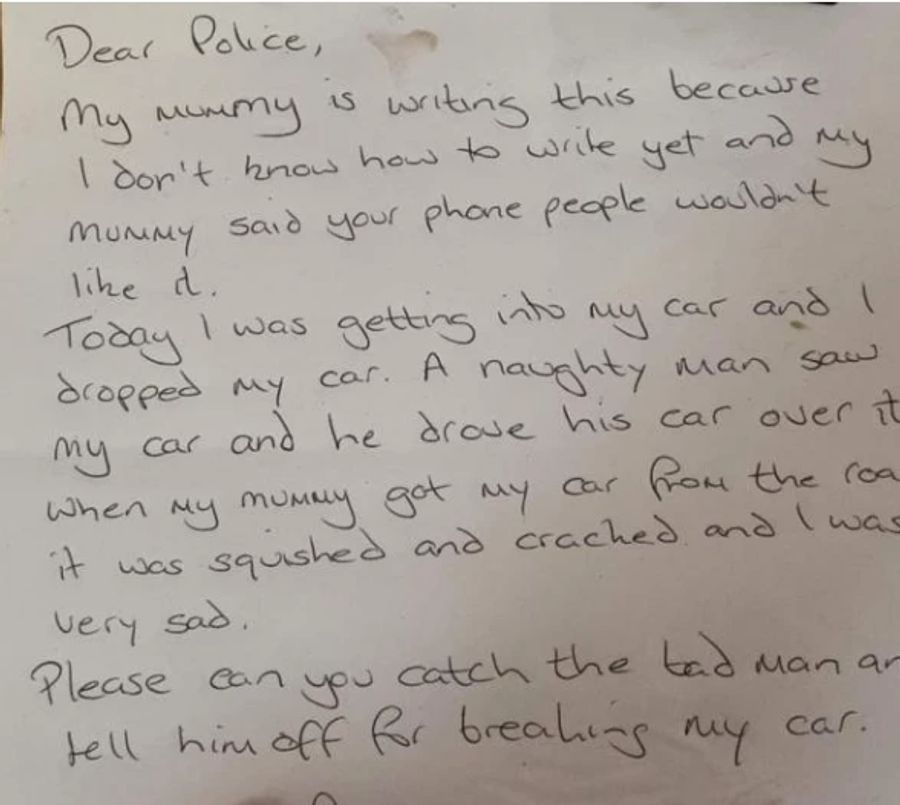 Dear Police,
My mummy is writing this because
I don't know how to write yet and my
mummy said your phone people wouldn't
like it.
Today I was getting into my car and I
dropped my car. A naughty man saw
my car and he drove his car over it
when my mummy got my car from the roa
it was squished and cracked and I was
very sad.
Please can you catch the bad man an
tell him off for breaking my car.